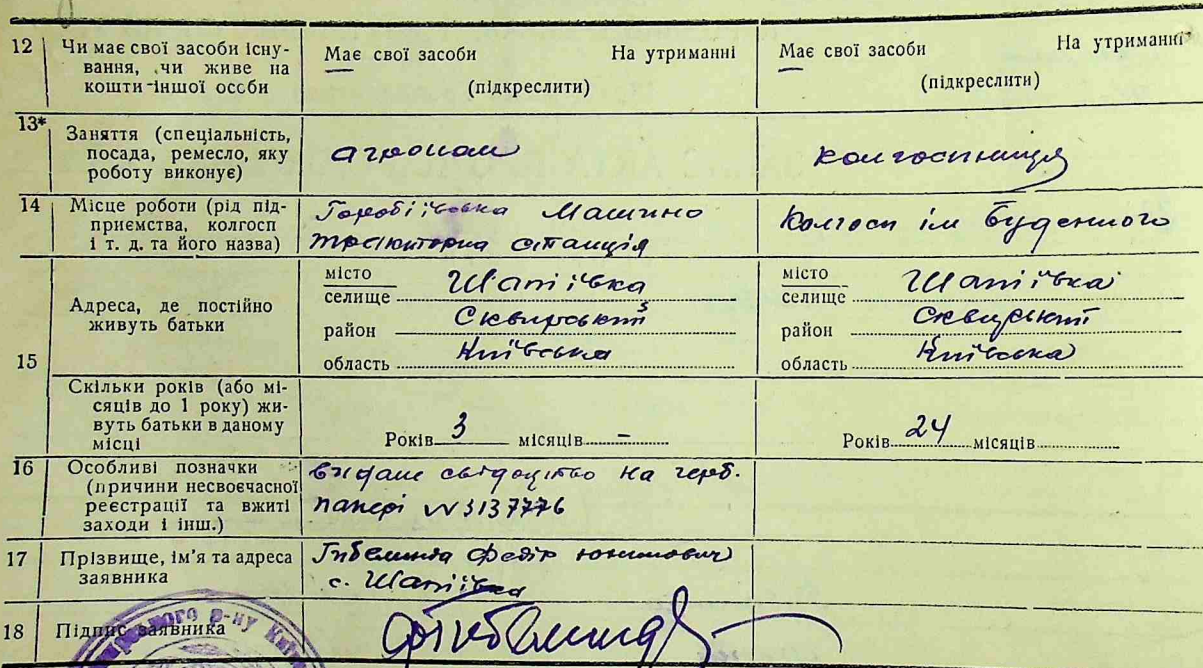 12 Чи має свої засоби існу-
вання, чи живе на
кошти іншої особи
Має свої засоби На утриманні
(підкреслити)
Має свої засоби На утриманні
(підкреслити)
13* Заняття (спеціальність,
посада, ремесло, яку
роботу виконує)
агроном
колгоспниця
14 Місце роботи (рід під-
приємства, колгосп
і т. д. та його назва)
Горобіївська Машино
тракторна станція
Колгосп ім Буденного
15
Адреса, де постійно
живуть батьки
місто
селище Шапіївка
район Сквирський
область Київська
місто
селище Шапіївка
район Сквирський
область Київська
Скільки років (або мі-
сяців до 1 року) жи-
вуть батьки в даному
місці
Років 3 місяців -
Років 24 місяців
16 Особливі позначки
(причини несвоєчасної
реєстрації та вжиті
заходи і інш.)
видане свідоцтво на герб.
папері № 3137776
17 Прізвище, ім'я та адреса
заявника
Федір Юхимович
с. Шапіївка
18 Підпис заявника
р-ну